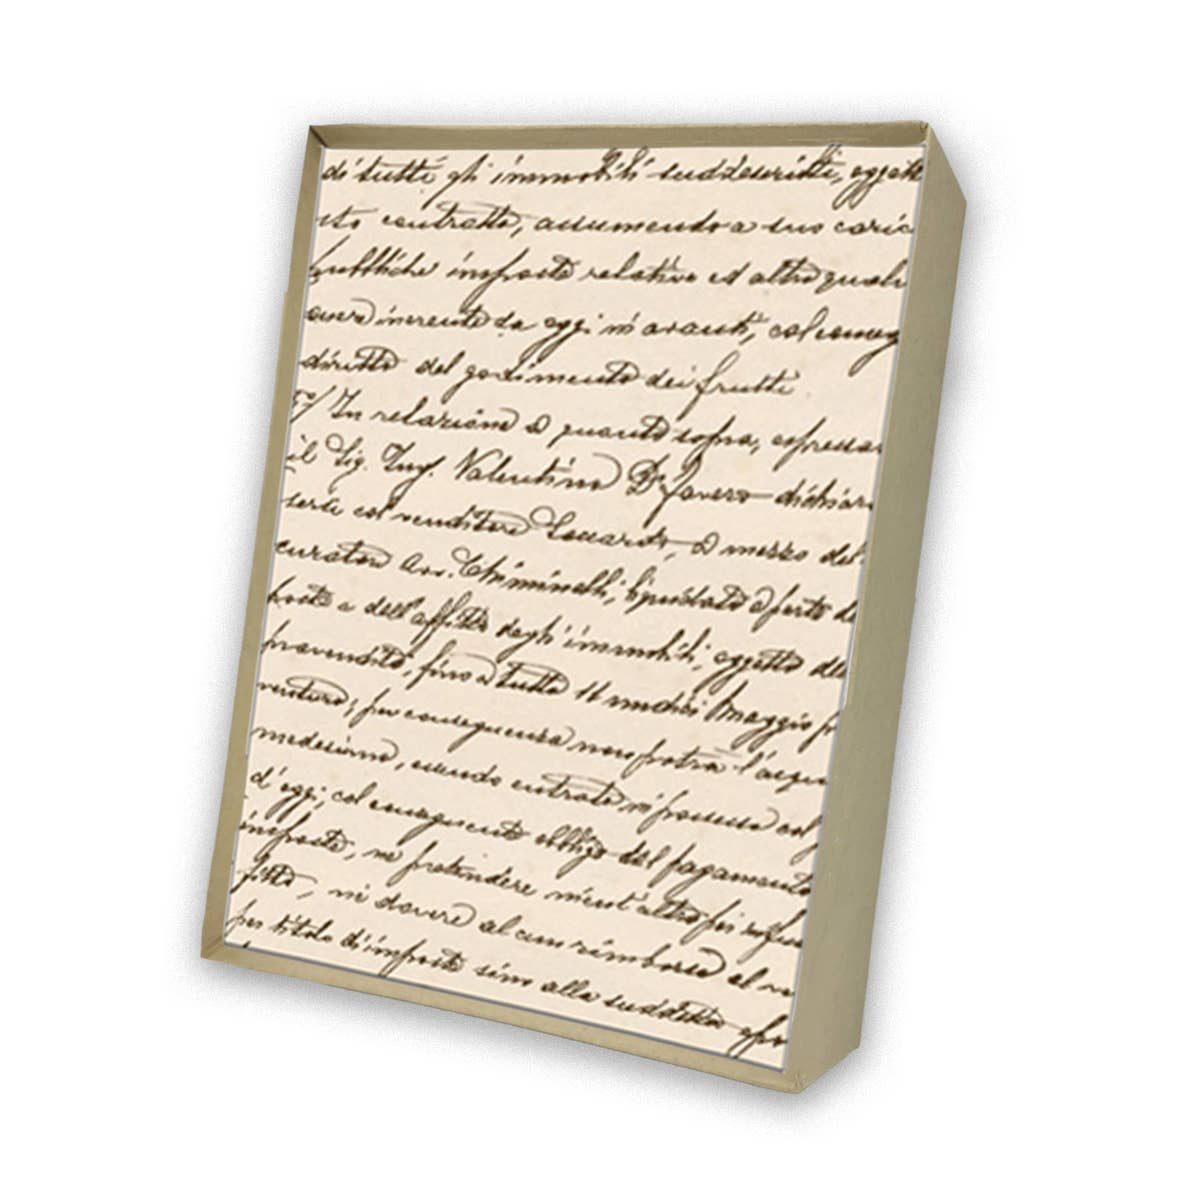 di tutti gli immobili suddescritti, oggett
sto contratto, assumendo a suo caric
pubbliche imposte relative ed altro quals
onere inerente da oggi in avanti, col conseg
diritto del godimento dei frutti
5º/ In relazione a quanto sopra, espressa
il Sig. Ing. Valentino Dr Favero dichiar
col venditore a mezzo del
curatore Avv. Chiminelli, liquidato
poste e dell'affitto degli immobili, oggetto de
fino a tutto 11 undici Maggio p
venturo; per conseguenza non potrà l'acqui
medesimo, essendo entrato in possesso col
d'oggi; col conseguente obbligo del pagamento
imposte, ne pretendere nient'altro per
fitto, ni dovere alcun rimborso al ve
per titolo di imposte sino alla suddetta epo